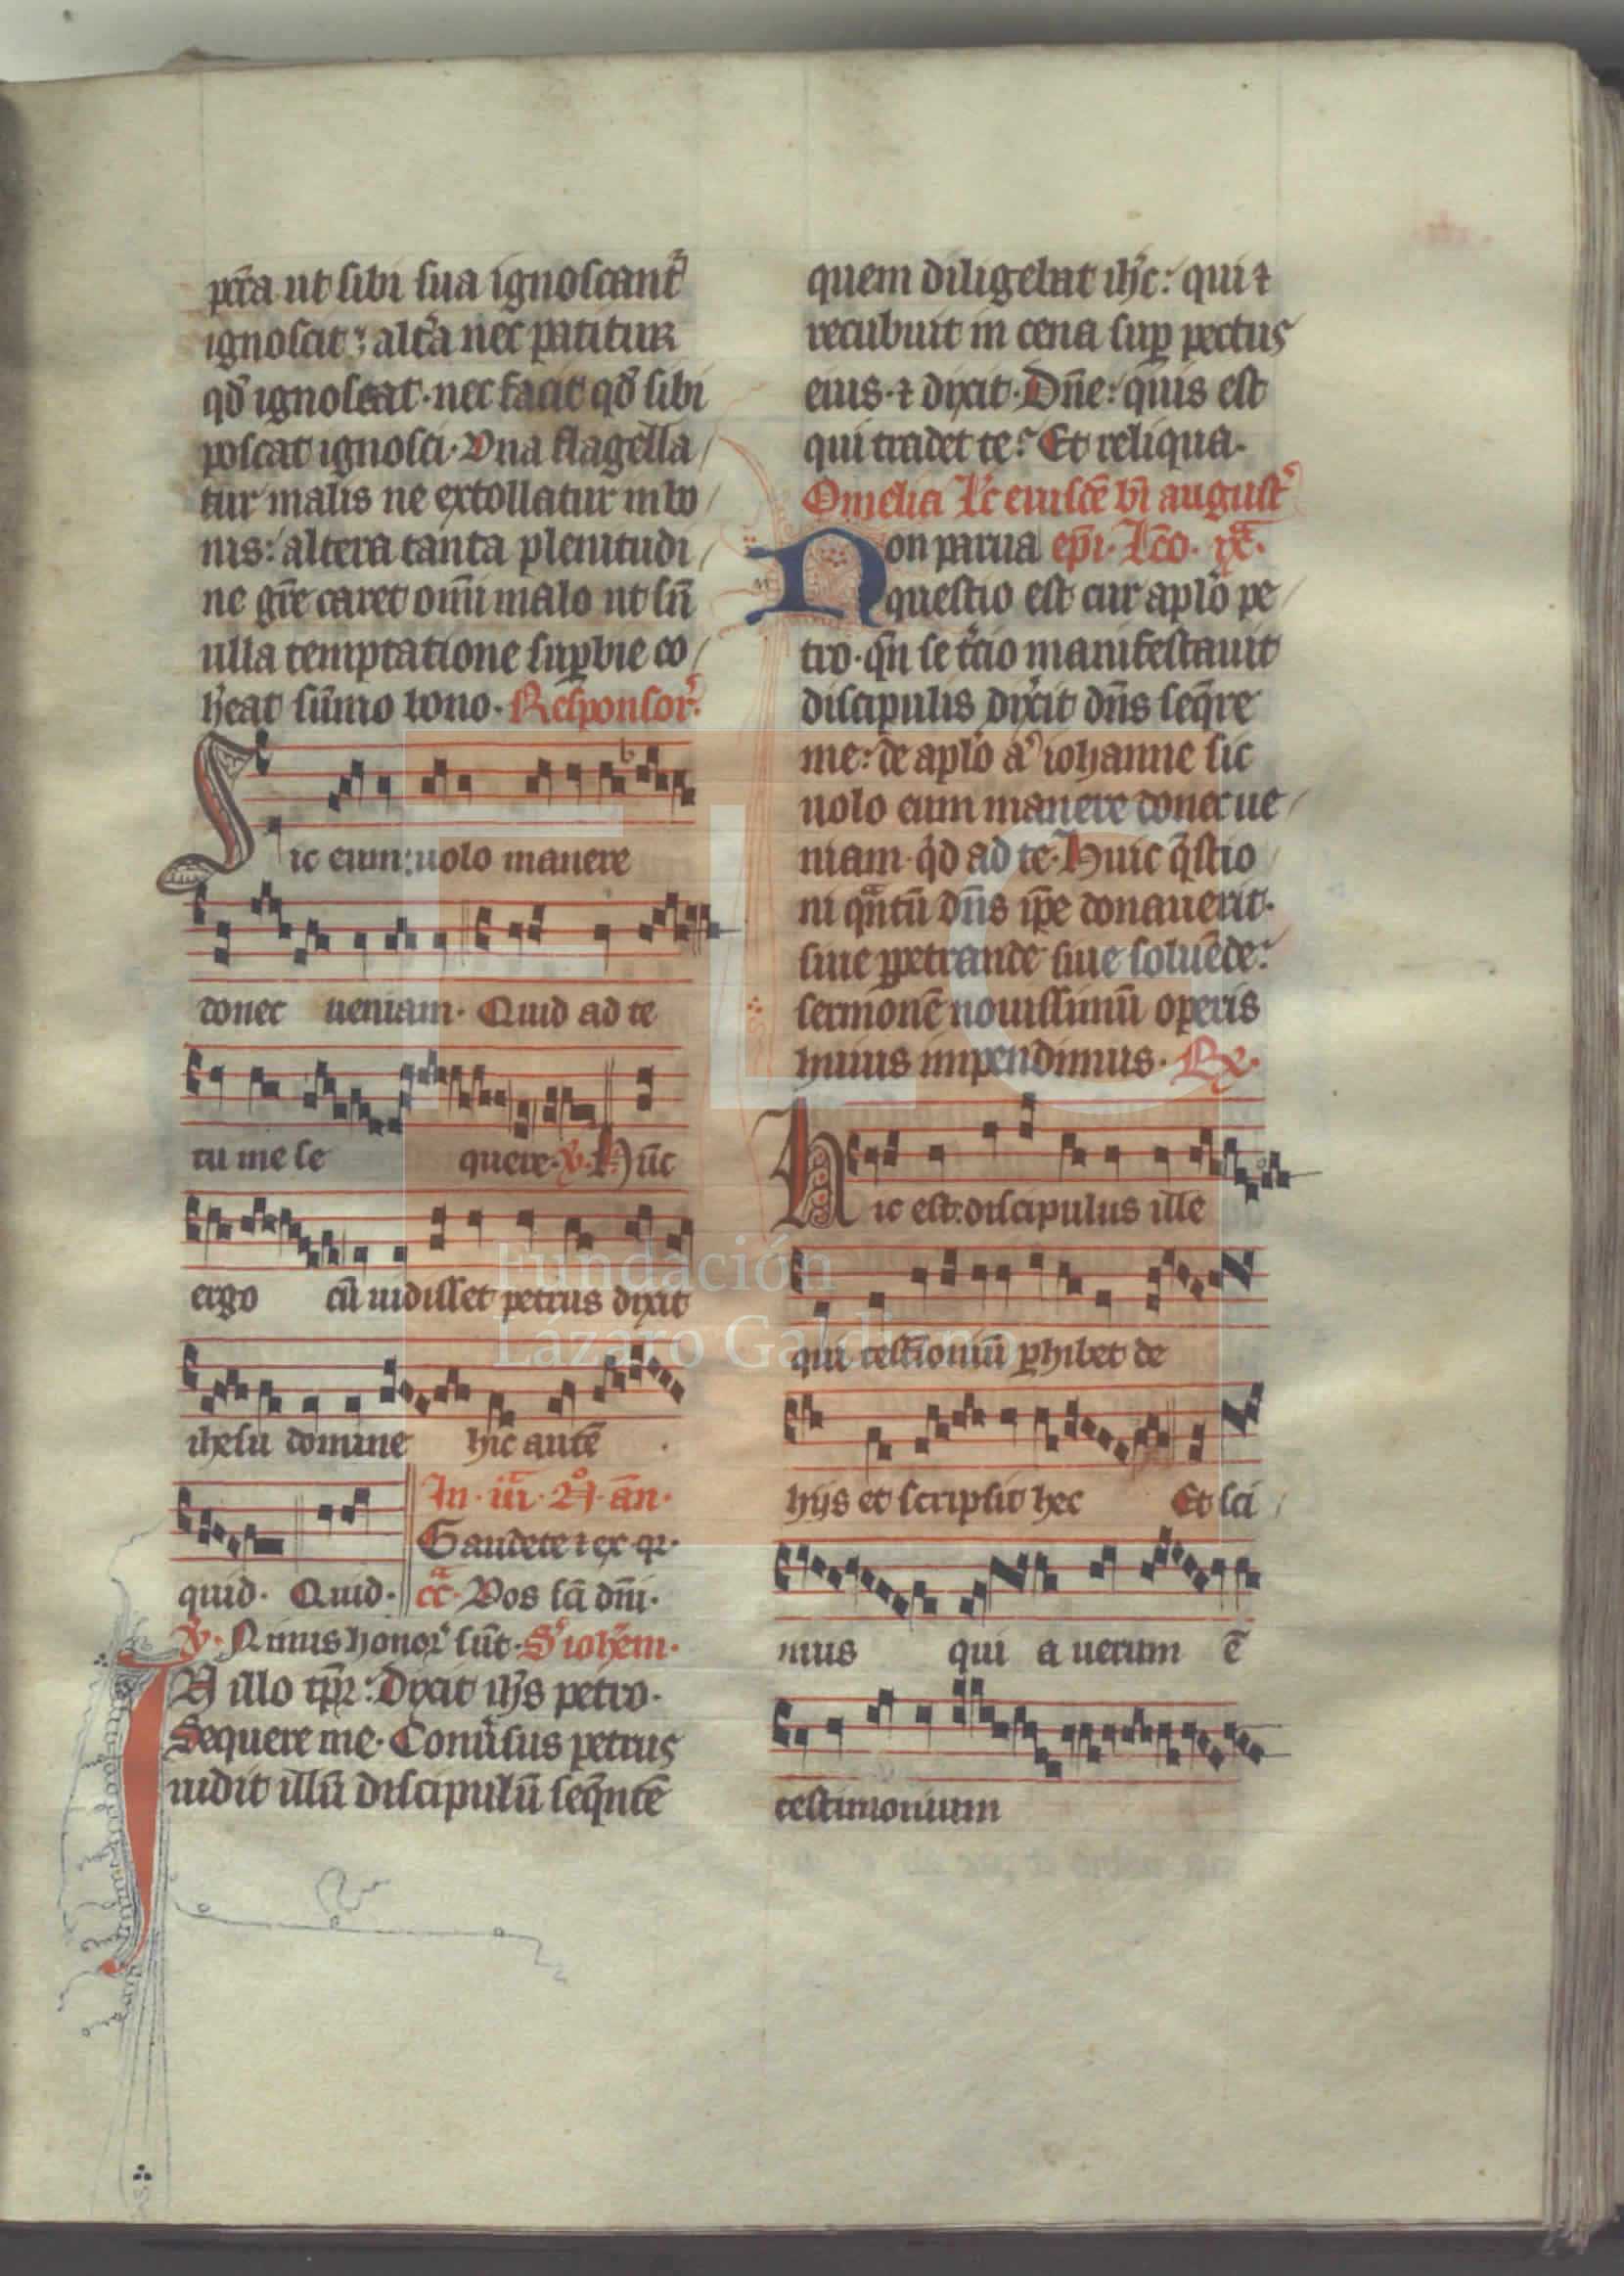 pctā ut sibi sua ignoscant᷑
ignoscit: alt̄a nec patitur
qđ ignoscat· nec facit qđ sibi
poscat ignosci· Vna flagella
tur malis ne extollatur in bo
nis: altera tanta plenitudi
ne gr̄e caret om̄i malo ut sn̄
ulla temptatione suꝑbie co
h̓eat sūmo bono· Responsor᷑
Sic eum: uolo manere
donec ueniam· Quid ad te
tu me se quere· ℣· Hūc
ergo cū uidisset petrus dixit
ihesu domine hic autē
quid· Quid·
In· iii· ān·
Gaudete ⁊ ex· qr·
Vos sc̄i dn̄i·
℣· Nimis honor᷑ sūt· S. ioh̓em·
In illo tp̄r: Dixit ih̄s petro·
Sequere me· Conūsus petrus
uidit illū discipulū seq̄ntē
quem diligebat ih̄c: qui ⁊
recubuit in cena suꝑ pectus
eius· ⁊ dixit· Dn̄e: quis est
qui tradet te? Et reliqua·
Omelia Lc̄ eiusdē bī august᷑
Non parua ep̄i· Lc̄o· ix̄·
questio est cur aplō pe
tro· qn̄ se t̓cio manifestauit
discipulis dixit dn̄s seq̄re
me: de aplō a᷑ iohanne sic
uolo eum manere donec ue
niam· qͥd ad te· Huic q̄stio
ni qͣntū dn̄s ip̄e donauerit·
siue ꝑpetrande siue soluēde:
sermonē nouissimū operis
huius impendimus· ℟·
Hic est: discipulus ille
qui testīoniū ꝑhibet de
hijs et scripsit hec Et sci
mus qui a uerum ē
testimonium
FLG
Fundación
Lázaro Galdiano